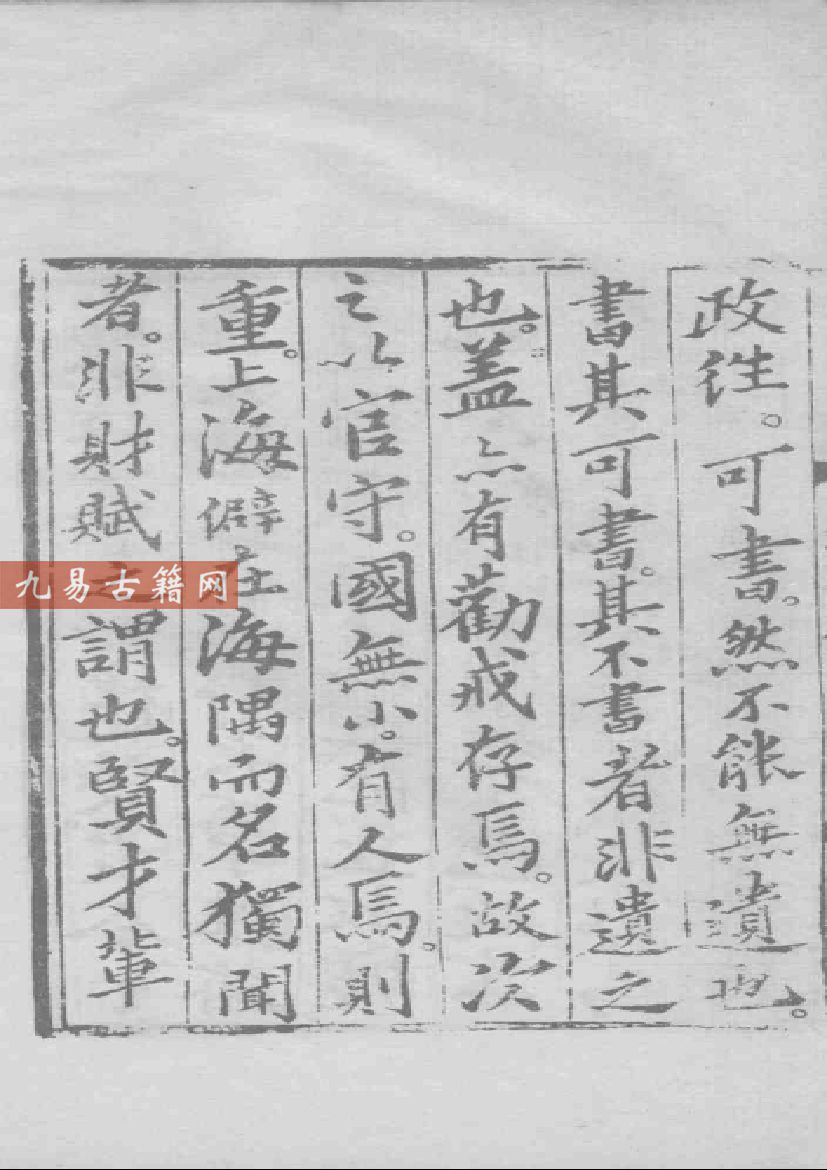 政徃。可書。然不能無遺也。
書其可書。其不書者非遺之
也。葢亦有勸戒存焉。故次
之以官守。國無小。有人焉。則
重。上海僻在海隅而名獨聞
者。非財賦之謂也。賢才輩
九易古籍网